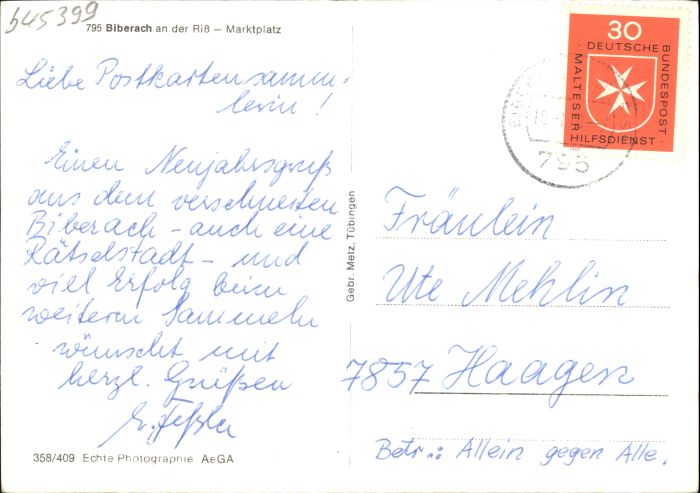 b45399
795 Biberach an der Riß – Marktplatz
Liebe Postkartensamm-
lerin!
Einen Neujahrsgruß
aus dem verschneiten
Biberach - auch eine
Rätselstadt - und
viel Erfolg beim
weiteren Sammeln
wünscht mit
herzl. Grüßen
358/409 Echte Photographie AeGA
Gebr. Metz, Tübingen
30
DEUTSCHE BUNDESPOST
MALTESER HILFSDIENST
795
Fräulein
Ute Mehlin
7857 Haagen
Betr.: Allein gegen Alle.